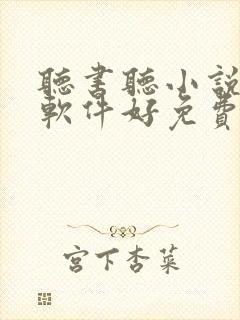 聽書聽小說
軟件好免費
宮下杏菜